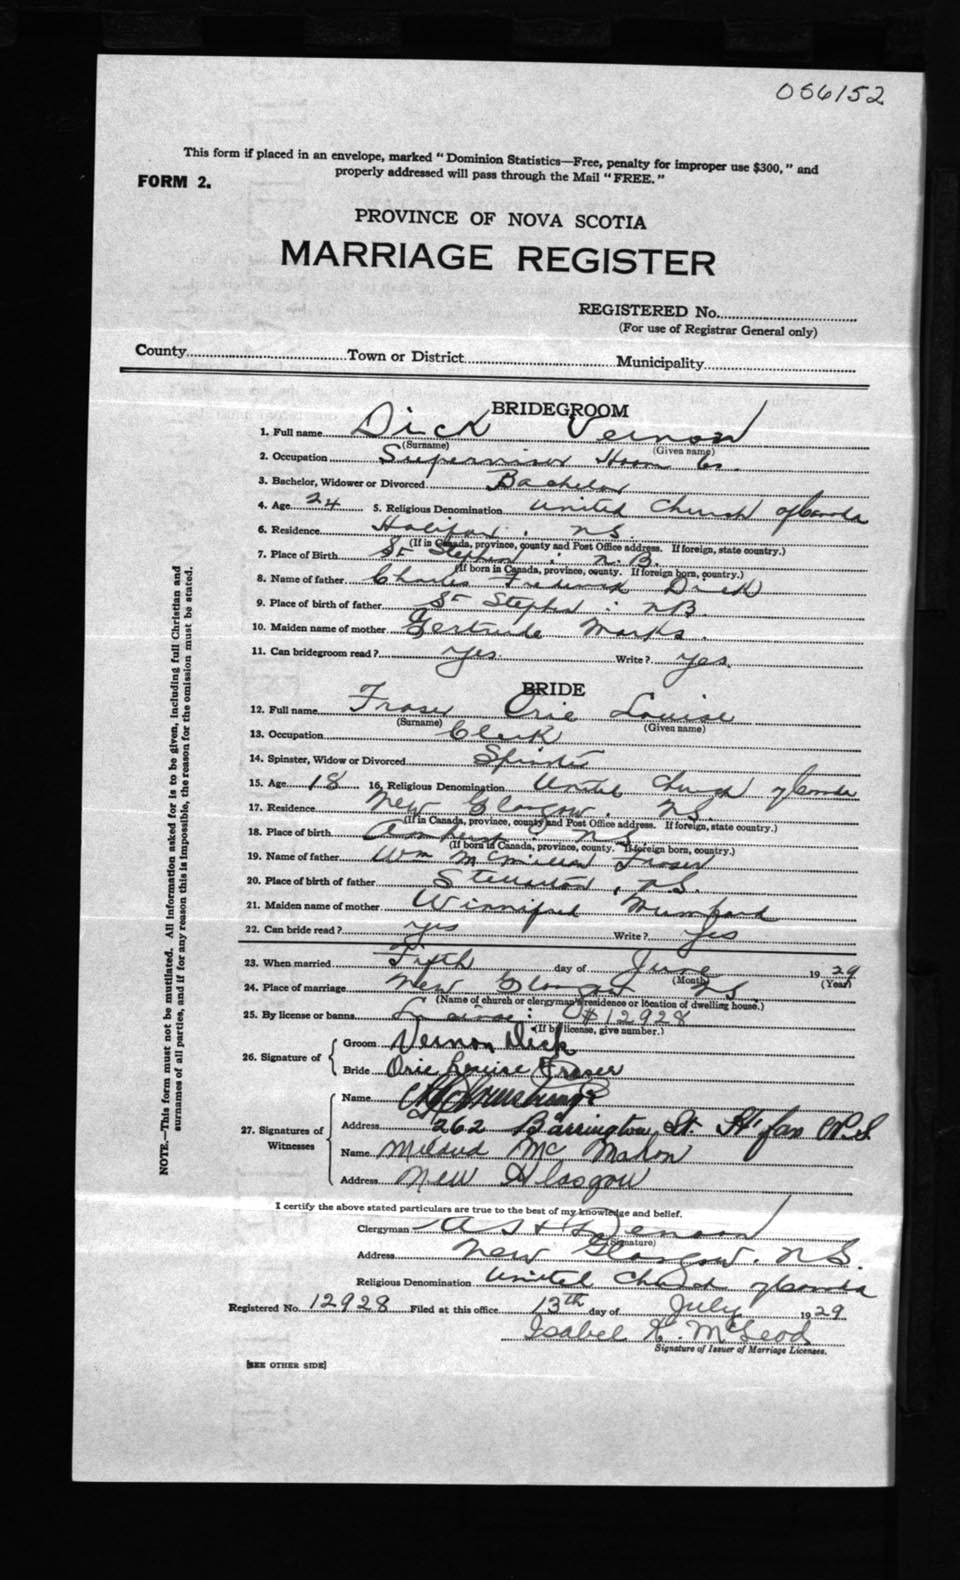 056152
This form if placed in an envelope, marked " Dominion Statistics—Free, penalty for improper use $300, " and
properly addressed will pass through the Mail " FREE. "
FORM 2.
PROVINCE OF NOVA SCOTIA
MARRIAGE REGISTER
REGISTERED No.
(For use of Registrar General only)
County Town or District Municipality
BRIDEGROOM
1. Full name Dick Vernon
(Surname) (Given name)
2. Occupation Supervisor Co.
3. Bachelor, Widower or Divorced Bachelor
4. Age 24 5. Religious Denomination United Church of Canada
6. Residence Halifax, N.S.
(If in Canada, province, county and Post Office address. If foreign, state country.)
7. Place of Birth St Stephen : N.B.
(If born in Canada, province, county. If foreign born, country.)
8. Name of father Charles Frederick Dick
9. Place of birth of father St Stephen : NB.
10. Maiden name of mother Gertrude Marks.
11. Can bridegroom read? yes. Write? yes.
BRIDE
12. Full name Fraser Orie Louise
(Surname) (Given name)
13. Occupation Clerk
14. Spinster, Widow or Divorced Spinster
15. Age 18 16. Religious Denomination United Church of Canada
17. Residence New Glasgow, N.S.
(If in Canada, province, county and Post Office address. If foreign, state country.)
18. Place of birth Amherst : N.S.
(If born in Canada, province, county. If foreign born, country.)
19. Name of father Wm McMillan Fraser
20. Place of birth of father Stellarton, N.S.
21. Maiden name of mother Winnifred Mumford
22. Can bride read? yes Write? yes
23. When married Fifth day of June 1929
(Month) (Year)
24. Place of marriage New Glasgow NS
(Name of church or clergyman's residence or location of dwelling house.)
25. By license or banns License : #12928
(If by license, give number.)
26. Signature of Groom Vernon Dick
Bride Orie Louise Fraser
27. Signatures of Witnesses Name Armstrong
Address 262 Barrington St. H'fax N.S
Name Mildred McMahon
Address New Glasgow
I certify the above stated particulars are true to the best of my knowledge and belief.
Clergyman
(Signature)
Address New Glasgow. N.S.
Religious Denomination United Church of Canada
Registered No. 12928 Filed at this office 13th day of July 1929
Isabel K. McLeod
Signature of Issuer of Marriage Licenses.
[SEE OTHER SIDE]
NOTE.—This form must not be mutilated. All information asked for is to be given, including full Christian and
surnames of all parties, and if for any reason this is impossible, the reason for the omission must be stated.